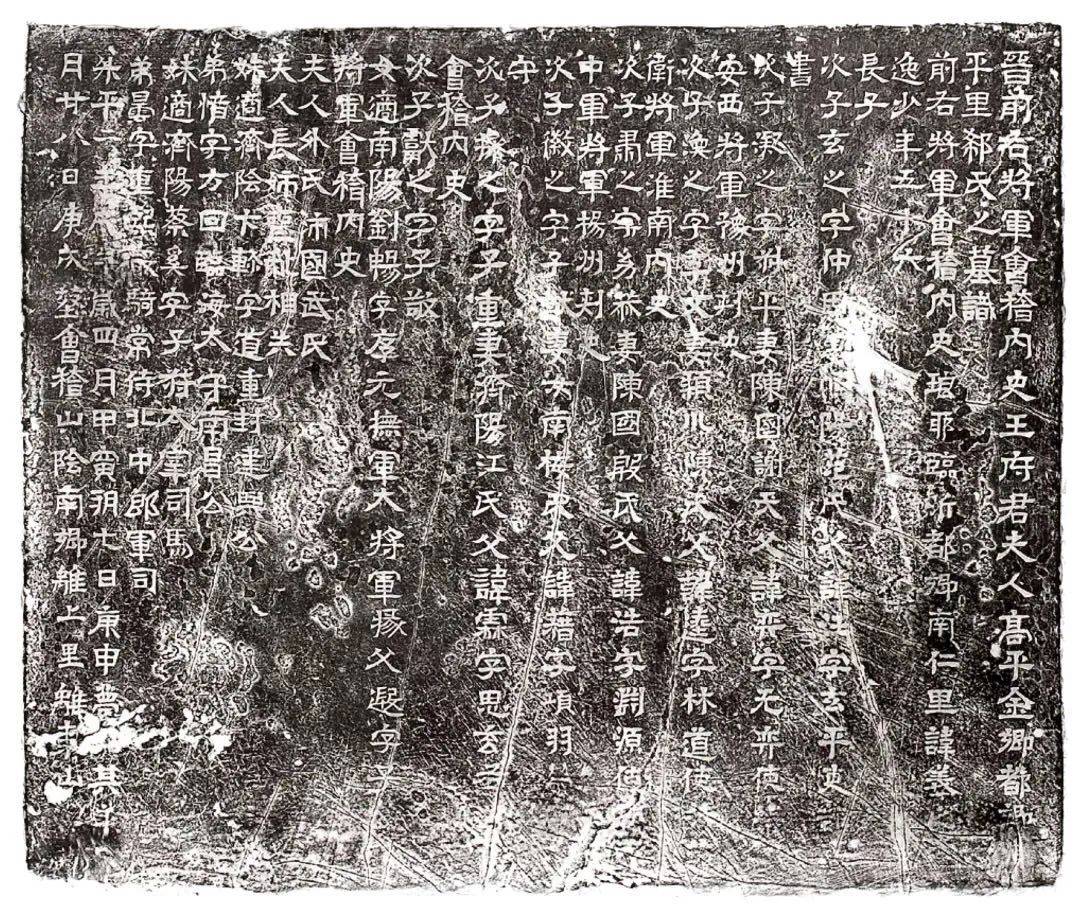 晉前右將軍會稽內史王府君夫人高平金鄉都鄉
平里郗氏之墓誌
前右將軍會稽內史琅耶臨沂都鄉南仁里諱羲
逸少年五十六
長子
次子玄之字仲 妻 陽范氏父諱汪字玄平吏
書
次子凝之字叔平妻陳國謝氏父諱弈字无弈使
安西將軍豫州刺史
次子渙之字 文妻潁川陳氏父諱逵字林道使
衛將軍淮南內史
次子肅之字幼恭妻陳國殷氏父諱浩字淵源使
中軍將軍揚州刺史
次子徽之字子 妻汝南梅氏父諱籍字項羽
守
次子操之字子重妻濟陽江氏父諱霖字思玄
會稽內史
次子獻之字子敬
女適南陽劉暢字 元撫軍大將軍掾父遐字
將軍會稽內史
夫人外氏沛國武氏
夫人長姉 相夫
妹適濟陰卞 字道重封建興公
弟愔字方回臨海太守南昌公
妹適濟陽蔡 字子 大宰司馬
弟曇字重熙 騎常侍北中郎軍司
升平二年 歲四月甲寅朔七日庚申薨 其年
月廿八日庚 葬會稽山陰南鄉離上里離 山